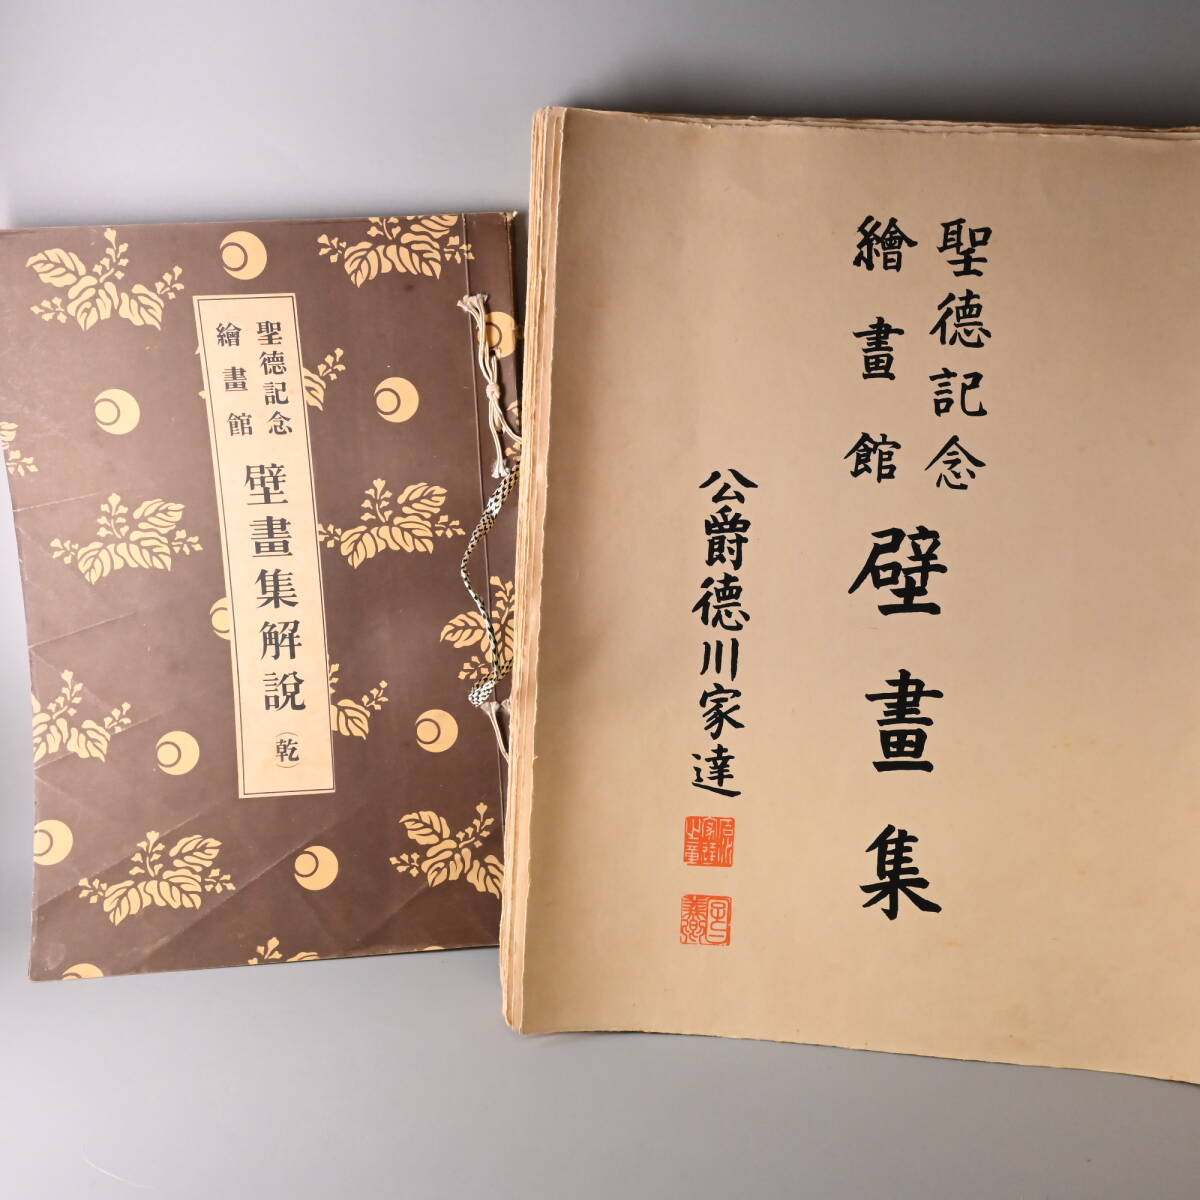 聖德記念
繪畫館
壁畫集解說
(乾)
聖德記念
繪畫館
壁畫集
公爵德川家達